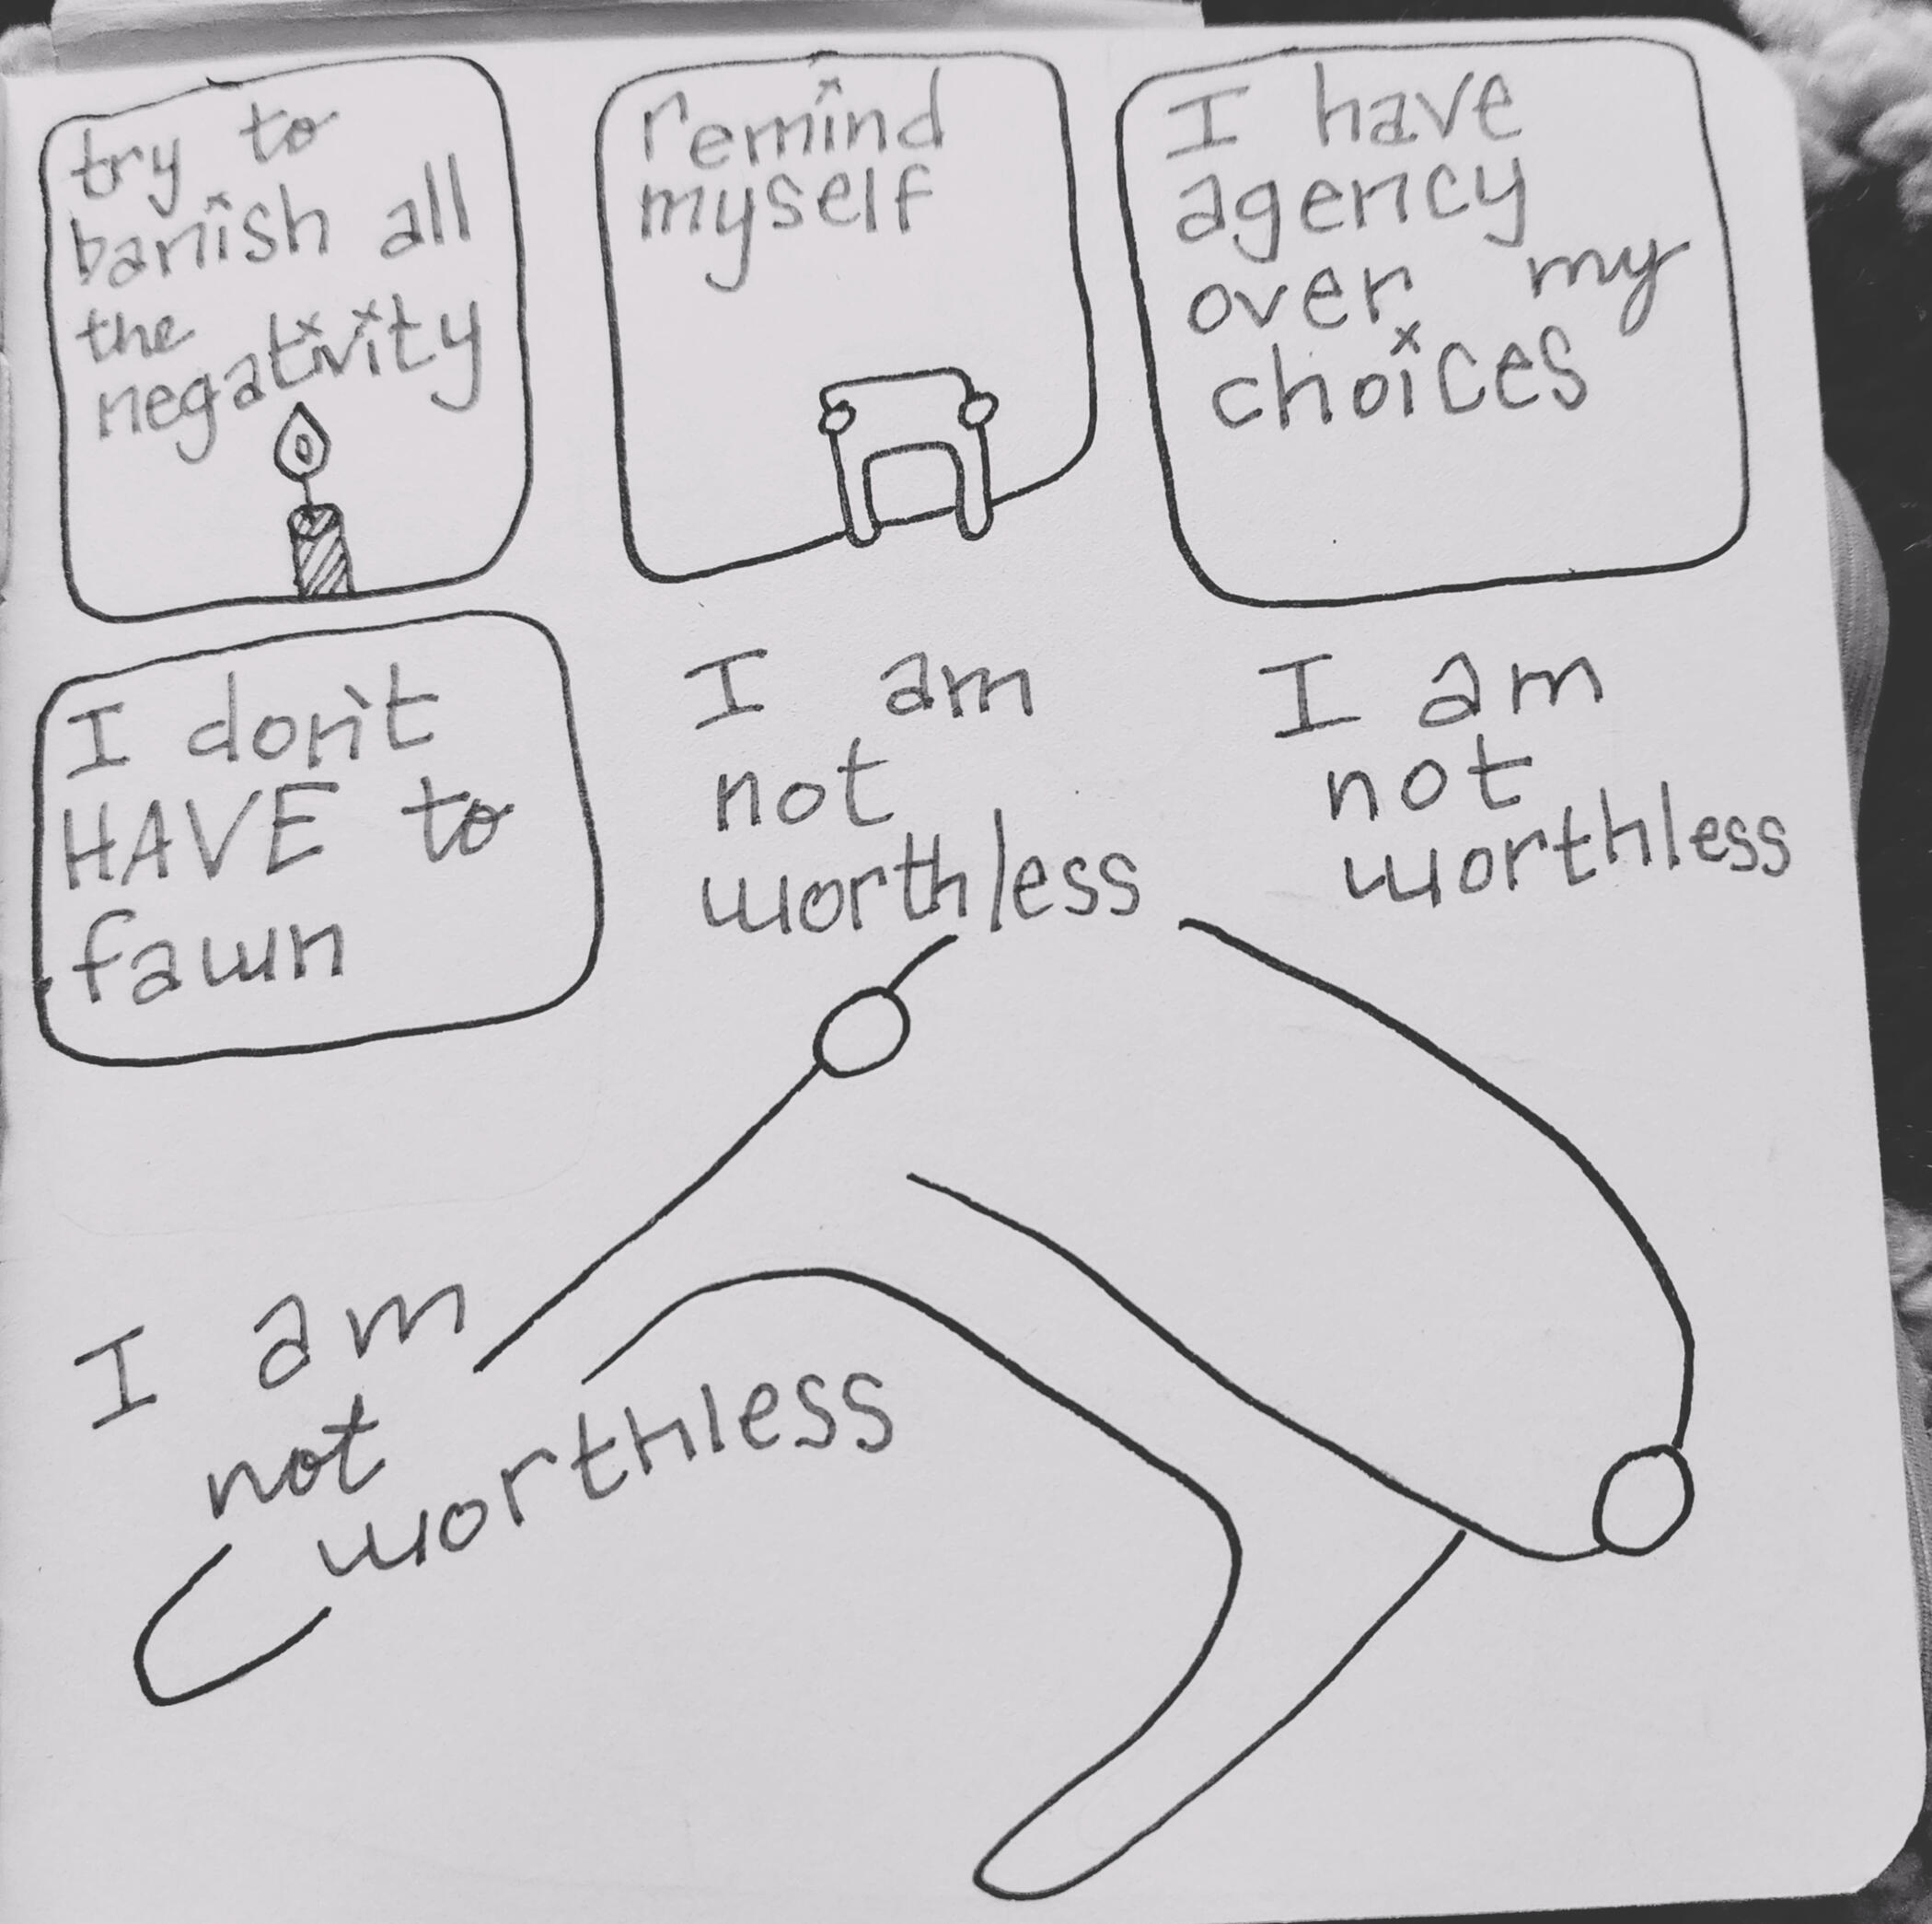 try to
banish all
the
negativity
remind
myself
I have
agency
over my
choices
I don't
HAVE to
fawn
I am
not
worthless
I am
not
worthless
I am
not
worthless